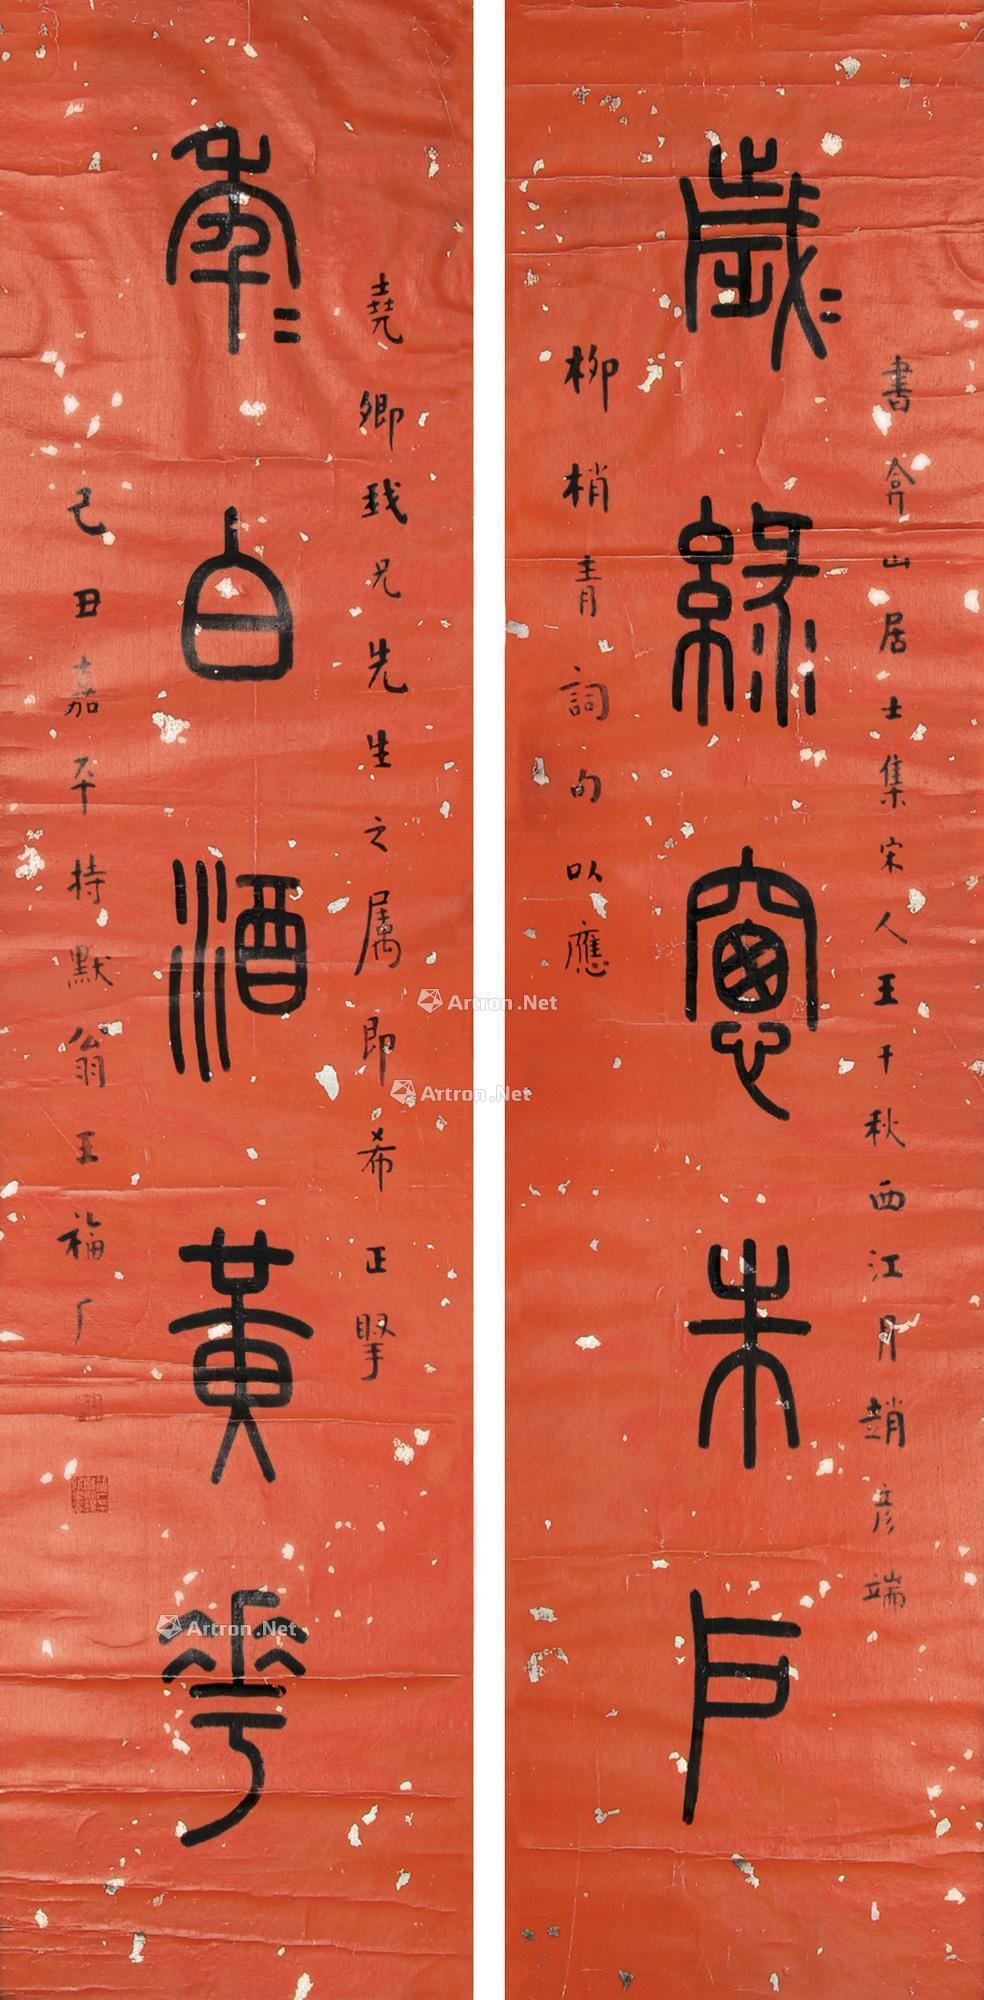 歲〻綠窗朱戶
書弇山居士集宋人王千秋西江月趙彥端
柳梢青詞句以應
年〻白酒黃華
堯卿我兄先生之属即希正掔
己丑嘉平持默翁王福厂
Artron.Net
Artron.Net
Artron.Net